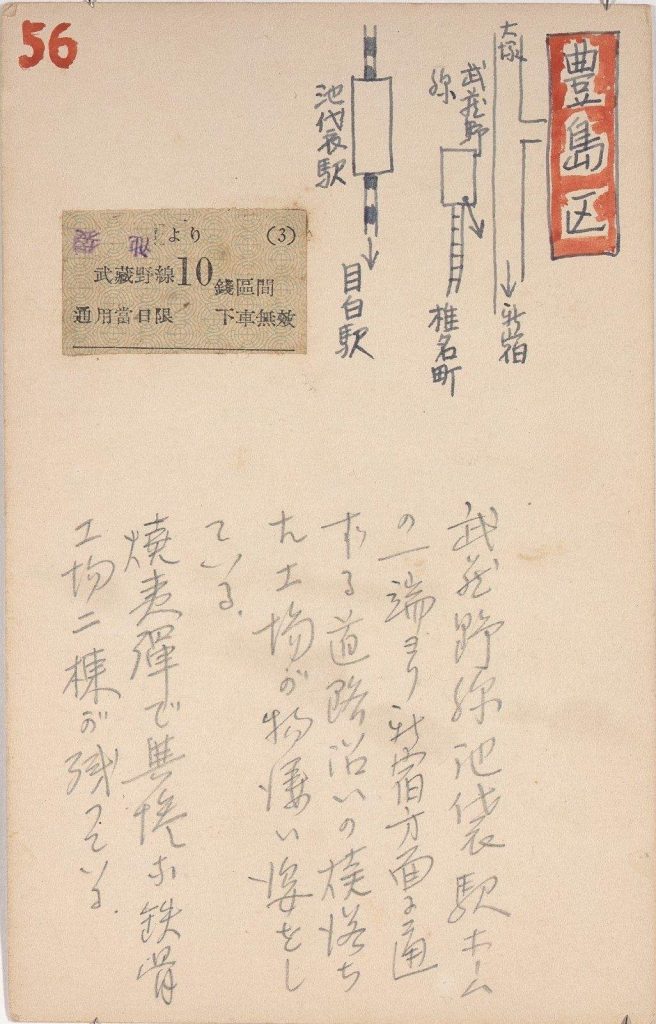 56
豊島区
大塚
新宿
武蔵野
線
椎名町
池袋駅
目白駅
池袋
より
(3)
武藏野線10錢區間
通用當日限 下車無效
武蔵野線池袋駅ホーム
の一端ヨリ新宿方面に通
ずる道路沿いの焼落ち
た工場が物凄い姿をし
ている.
焼夷彈で無惨な鉄骨
工場二棟が残っている.